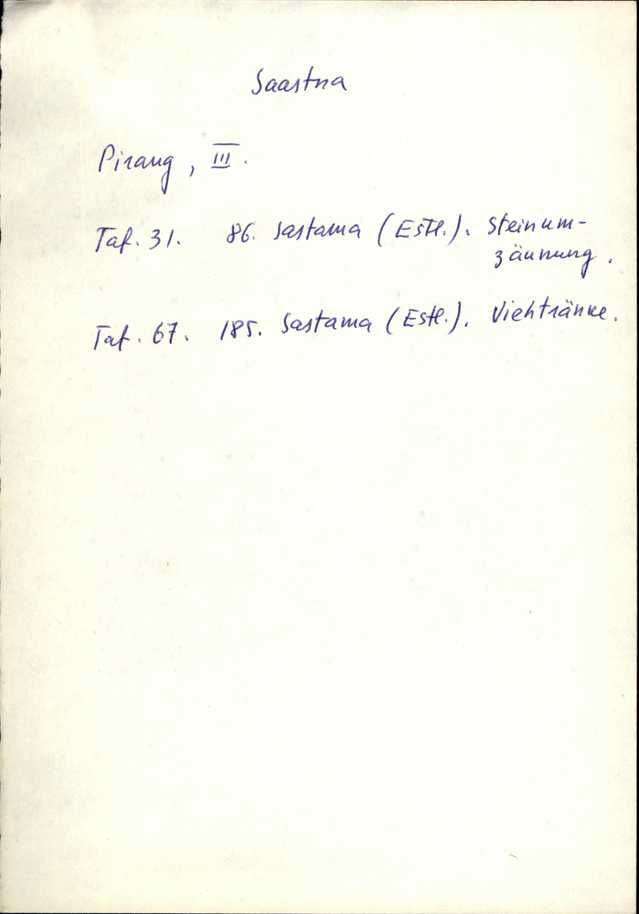 Saastna
Pirang, III.
Taf. 31. 86. Sastama (Estl.). Steinum-
zäunung.
Taf. 67. 185. Sastama (Estl.). Viehtränke.